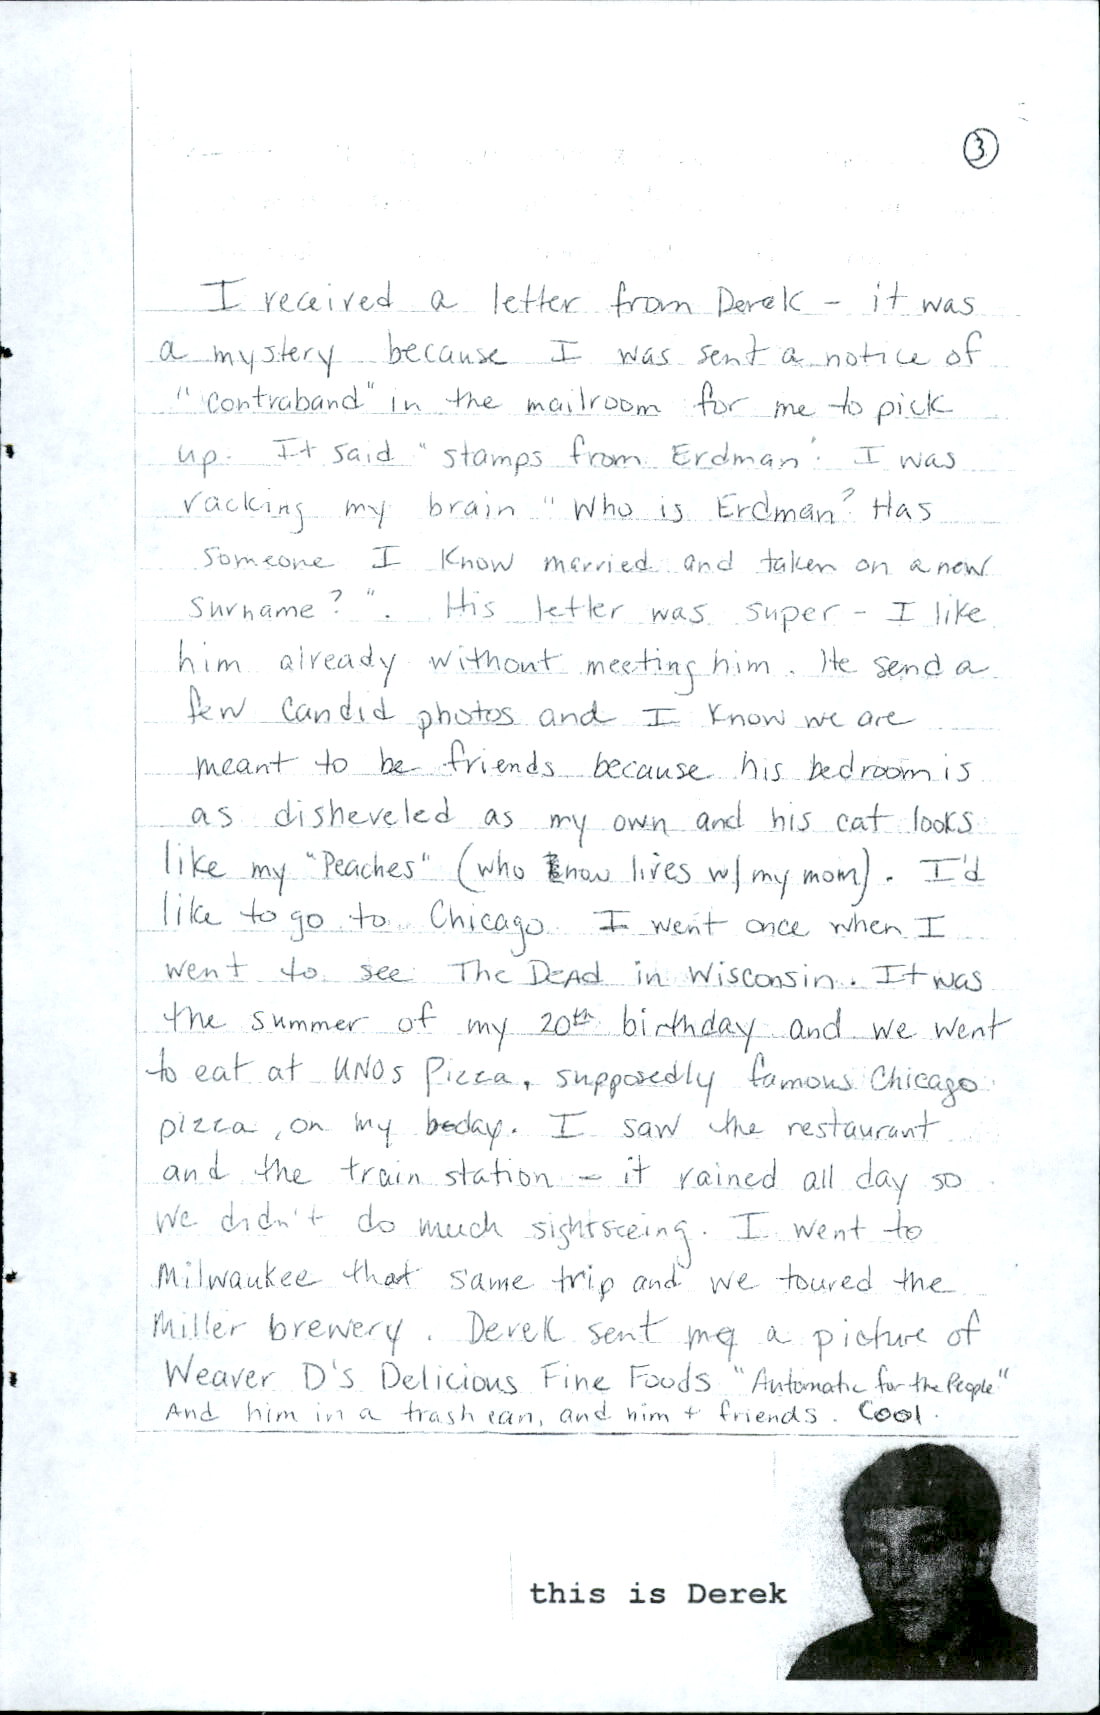 3
I received a letter from Derek - it was
a mystery because I was sent a notice of
"contraband" in the mailroom for me to pick
up. It said "stamps from Erdman". I was
racking my brain "Who is Erdman? Has
someone I know married and taken on a new
surname?". His letter was super - I like
him already without meeting him. He send a
few candid photos and I know we are
meant to be friends because his bedroom is
as disheveled as my own and his cat looks
like my "Peaches" (who now lives w/ my mom). I'd
like to go to Chicago. I went once when I
went to see The DEAD in Wisconsin. It was
the summer of my 20th birthday and we went
to eat at UNOs Pizza, supposedly famous Chicago
pizza, on my bday. I saw the restaurant
and the train station - it rained all day so
we didn't do much sightseeing. I went to
Milwaukee that same trip and we toured the
Miller brewery. Derek sent me a picture of
Weaver D's Delicious Fine Foods "Automatic for the People"
And him in a trash can, and him + friends. Cool.
this is Derek